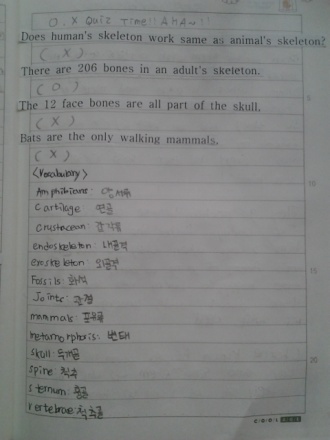 O.X Quiz Time!! AHA~!!
Does human's skeleton work same as animal's skeleton?
( X )
There are 206 bones in an adult's skeleton.
( O )
The 12 face bones are all part of the skull.
( X )
Bats are the only walking mammals.
( X )
<Vocabulary>
Amphibians: 양서류
Cartilage 연골
crustacean: 갑각류
endoskeleton: 내골격
exoskeleton: 외골격
Fossils: 화석
Joints: 관절
mammals: 포유류
metamorphosis: 변태
skull: 두개골
spine: 척추
sternum: 흉골
vertebrae: 척추골
5
10
15
20